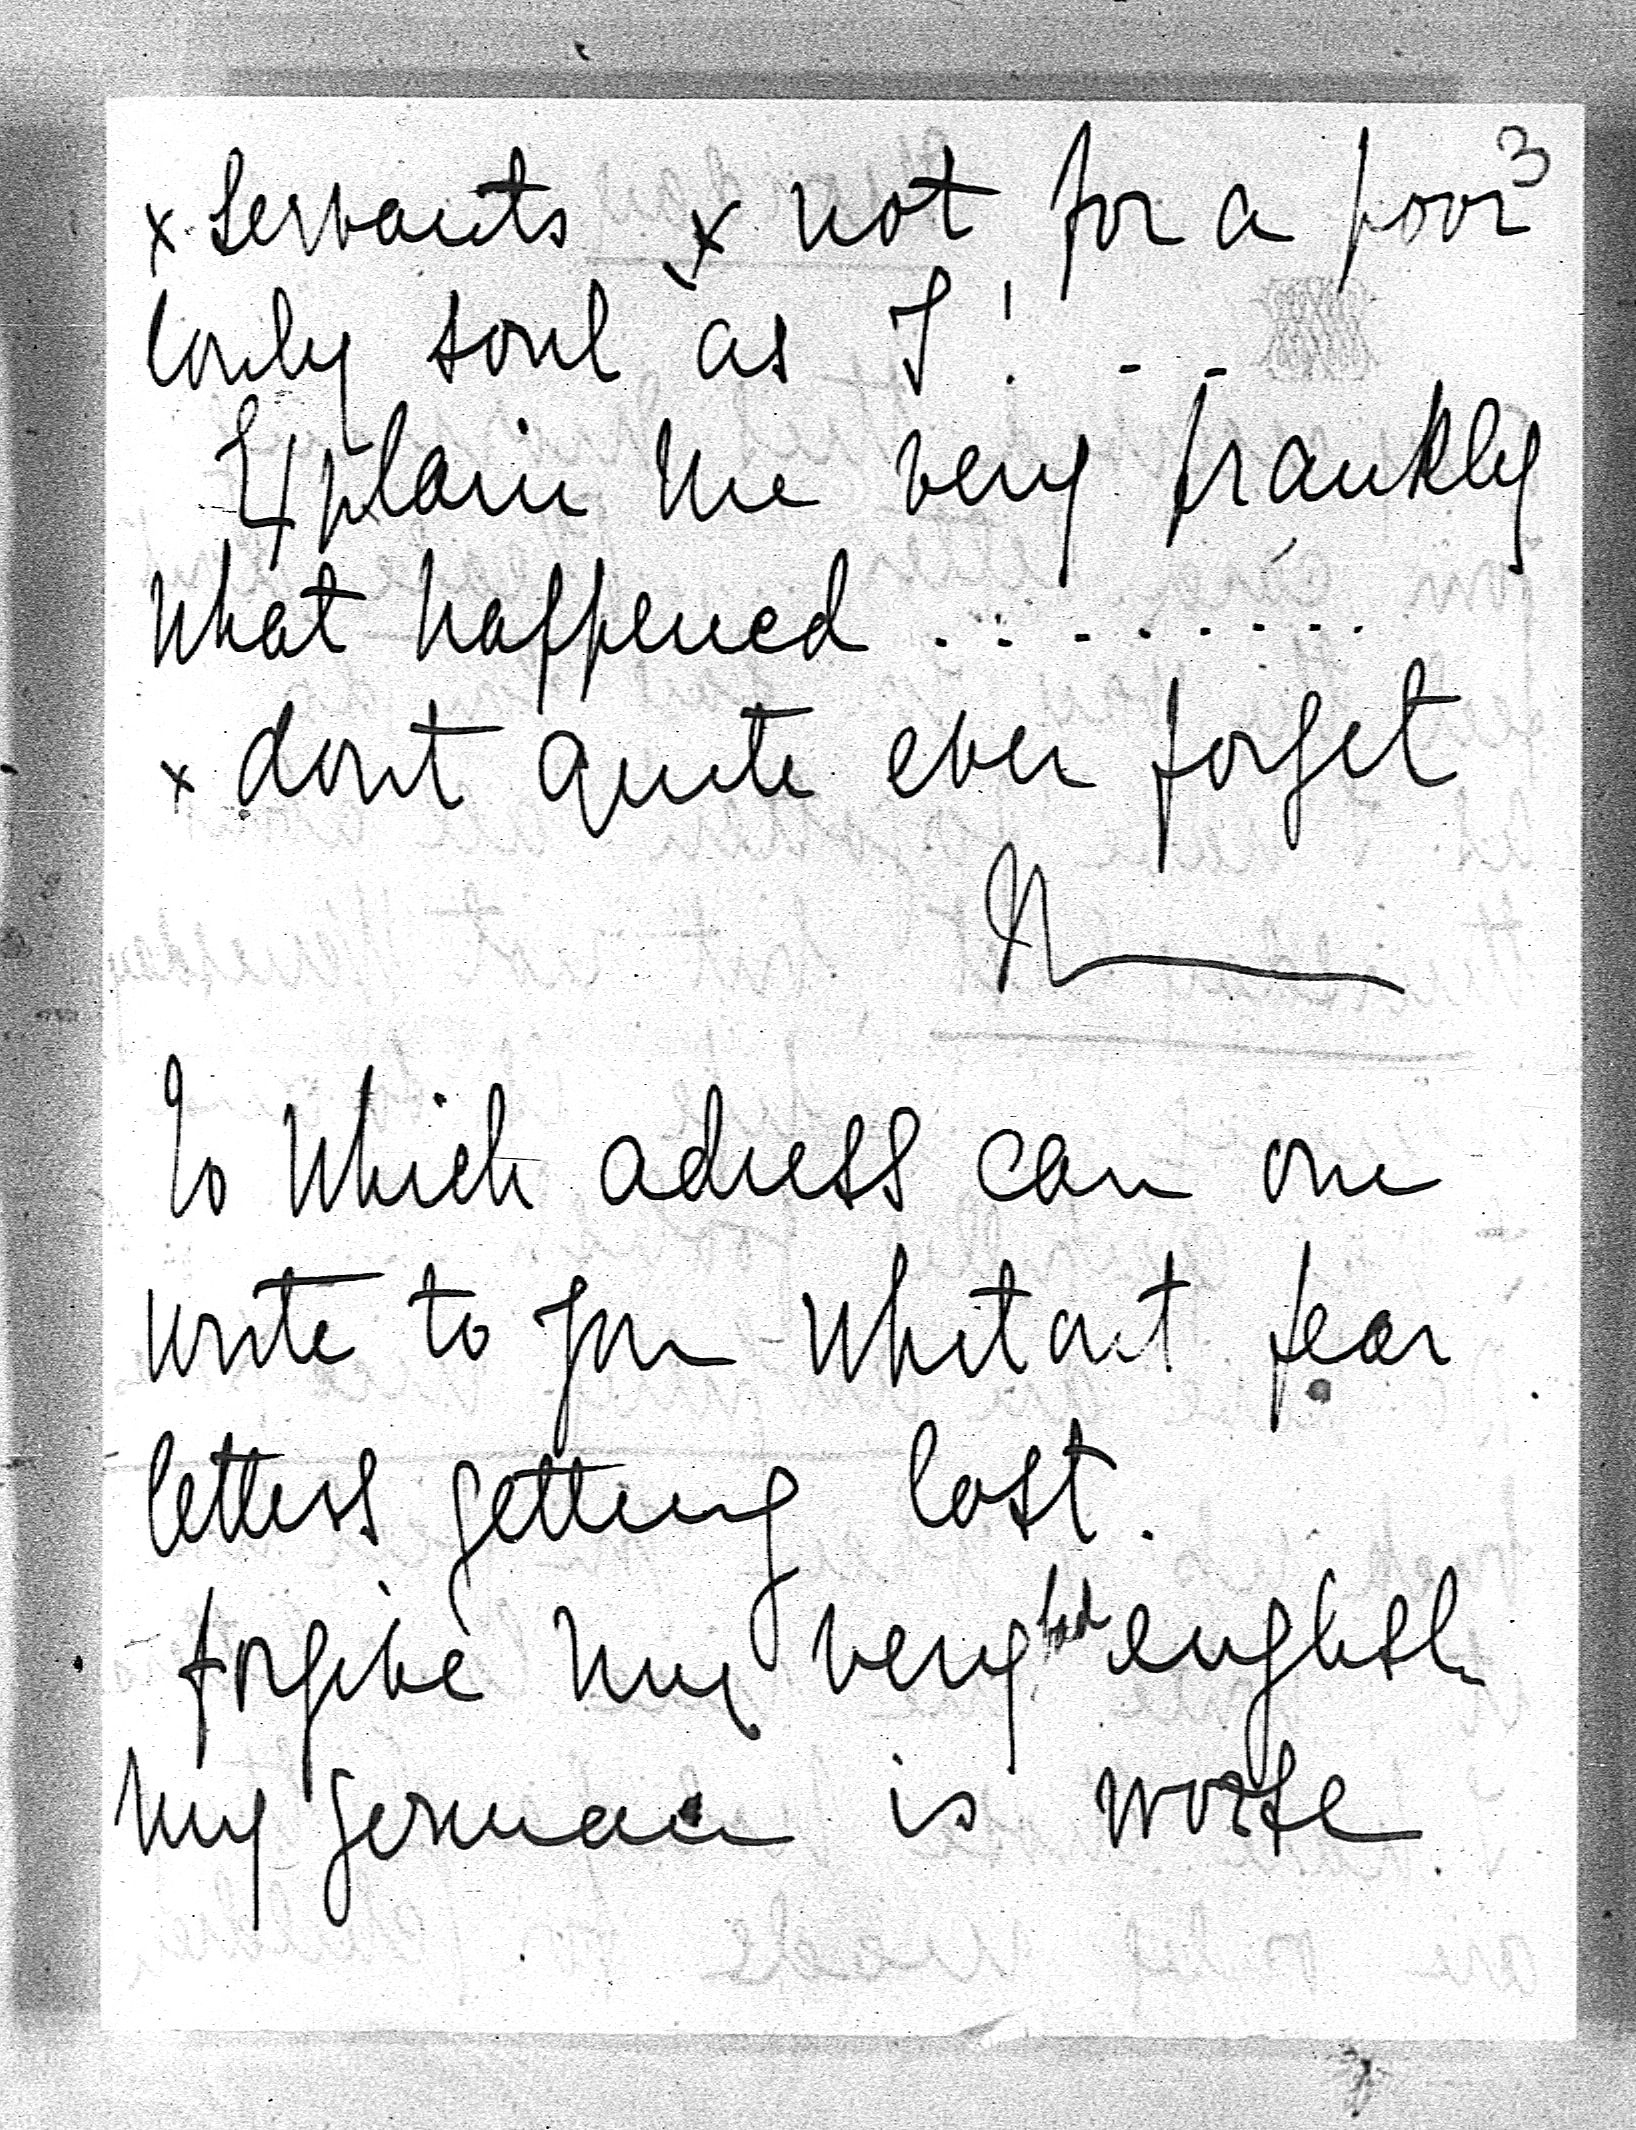 3
x servants x not for a poor
lonly soul as I! - -
Explain me very frankly
what happened . . . . . . . .
x dont quite ever forget
N
To which adress can one
write to you whitout fear
letters getting lost.
forgive my very bad english
my german is worse.